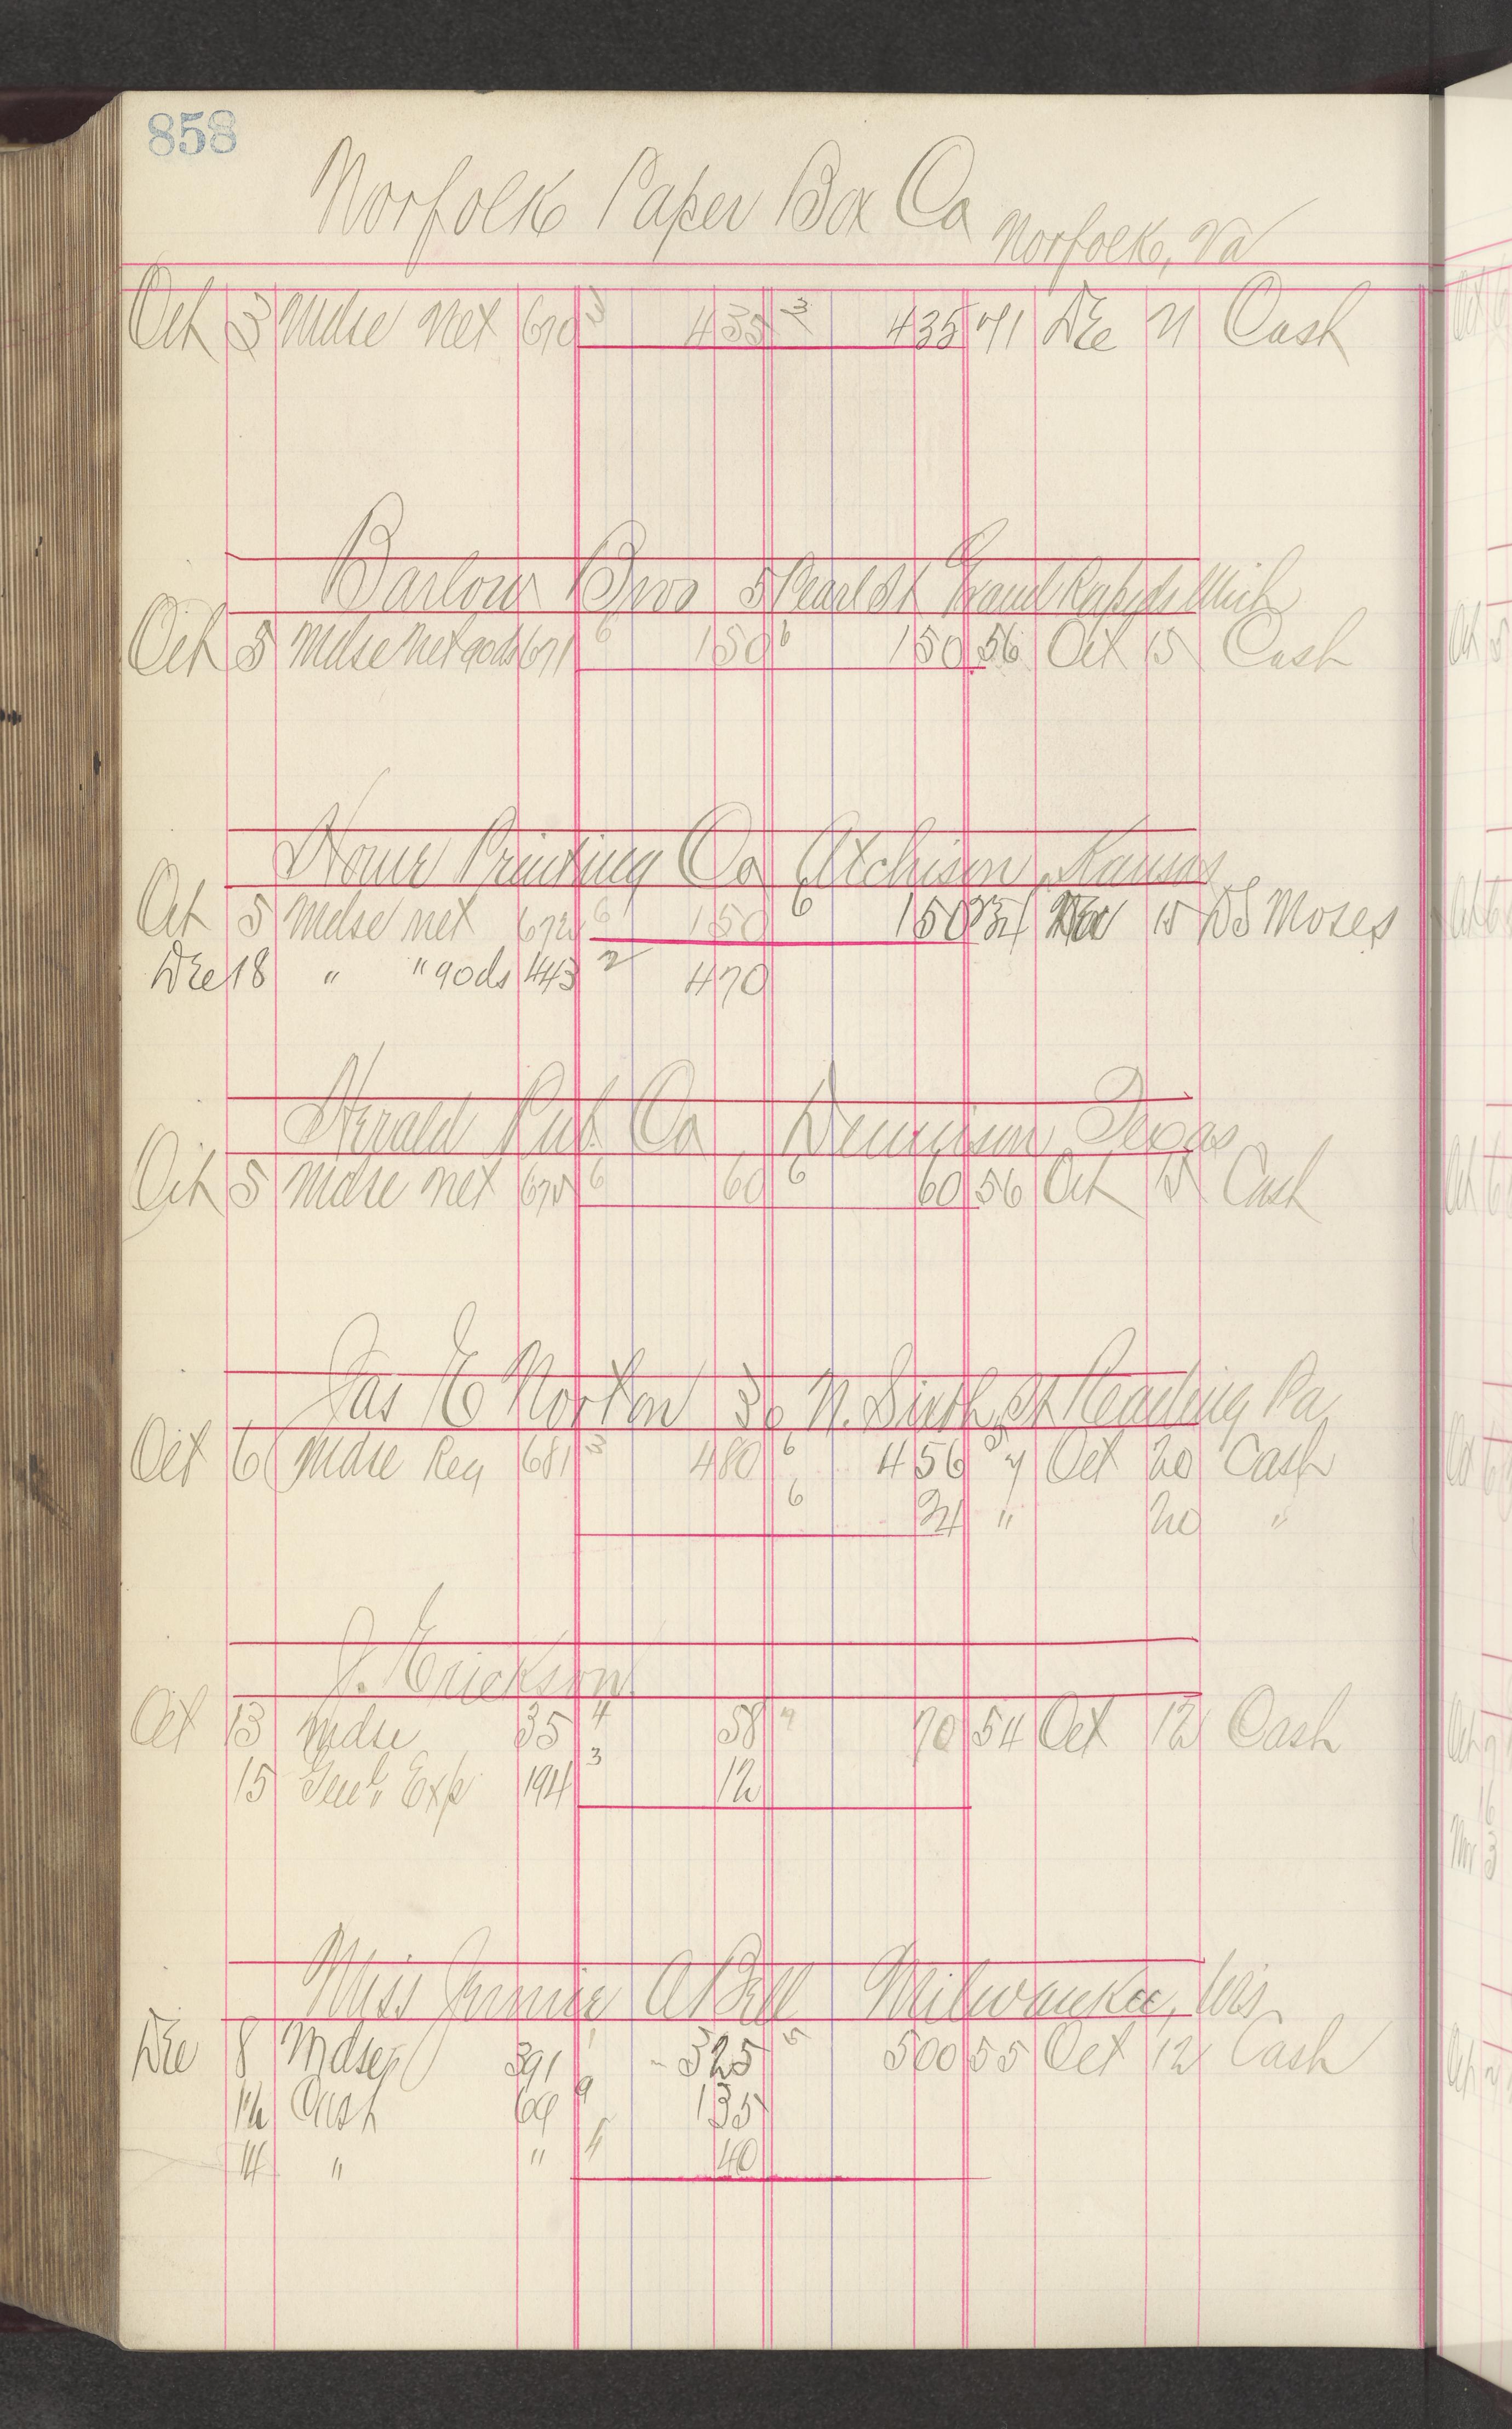 858
Norfolk Paper Box Co Norfolk, Va
Oct 3 Mdse Net 670 3 435 3 435 71 Dec 21 Cash
Barlow Bros 5 Pearl St Grand Rapids Mich
Oct 5 Mdse Net 90ds 671 6 150 6 150 56 Oct 15 Cash
Home Printing Co Atchison, Kansas
Oct 5 Mdse net 672 6 150 6 150 Nov 15 DS Moses
Dec 18 " " 90 ds 443 2 470
Herald Pub Co Dennison Texas
Oct 5 Mdse net 675 6 60 6 60 56 Oct 15 Cash
Jas E Norton 30 N. Sixth St Reading Pa
Oct 6 Mdse Reg 681 3 480 6 456 57 Oct 20 Cash
6 24 " 20 "
J. Erickson
Oct 13 Mdse 35 4 58 70 54 Oct 12 Cash
15 Genl Exp 194 3 12
Miss Jennie A Bell Milwaukee, Wis
Dec 8 Mdse 391 1 325 5 500 55 Oct 12 Cash
12 Cash 69 9 135
14 " " 4 40